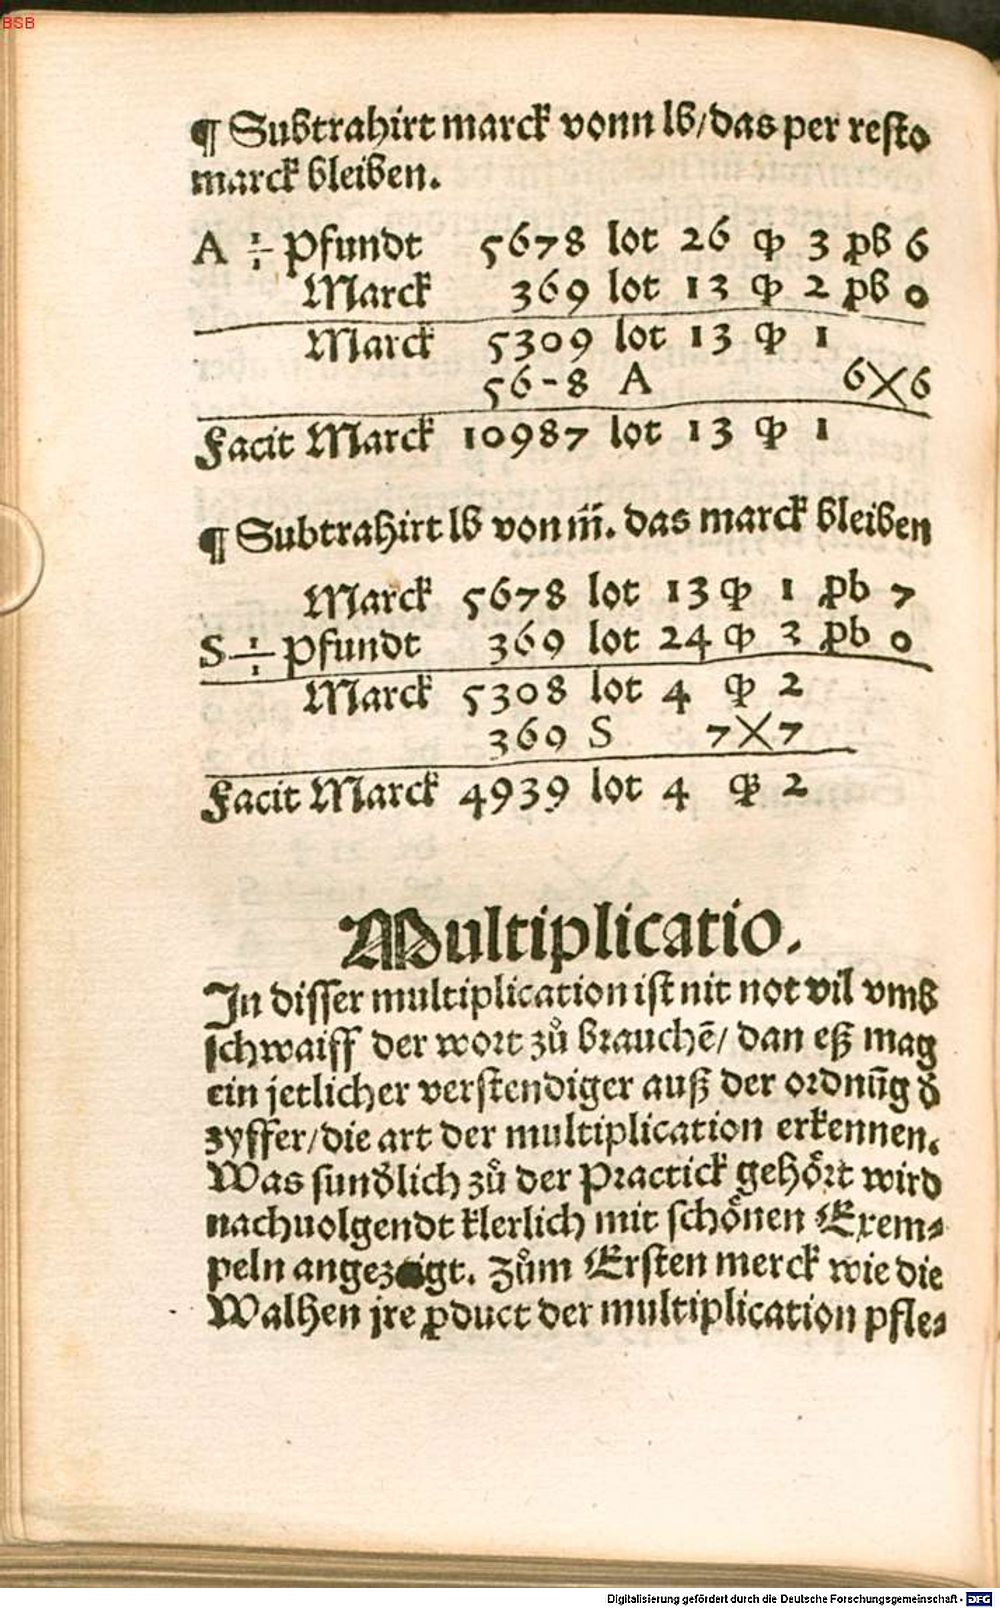 BSB
¶ Subtrahirt marck vonn lb/das per resto
marck bleiben.
A ÷ Pfundt 5678 lot 26 qp 3 ꝓb 6
Marck 369 lot 13 qp 2 ꝓb 0
Marck 5309 lot 13 qp 1
56-8 A 6X6
Facit Marck 10987 lot 13 qp 1
¶ Subtrahirt lb von m̃. das marck bleiben
Marck 5678 lot 13 qp 1 ꝓb 7
S ÷ Pfundt 369 lot 24 qp 3 ꝓb 0
Marck 5308 lot 4 qp 2
369 S 7X7
Facit Marck 4939 lot 4 qp 2
Multiplicatio.
In disser multiplication ist nit not vil vmb
schwaiff der wort zů brauchē/ dan eß mag
ein jetlicher verstendiger auß der ordnūg d̕
zyffer/die art der multiplication erkennen.
Was sund̕lich zů der Practick gehört wird
nachuolgendt klerlich mit schönen Exem⸗
peln angezeigt. Zům Ersten merck wie die
Walhen jre ꝓduct der multiplication pfle⸗
Digitalisierung gefördert durch die Deutsche Forschungsgemeinschaft - DFG